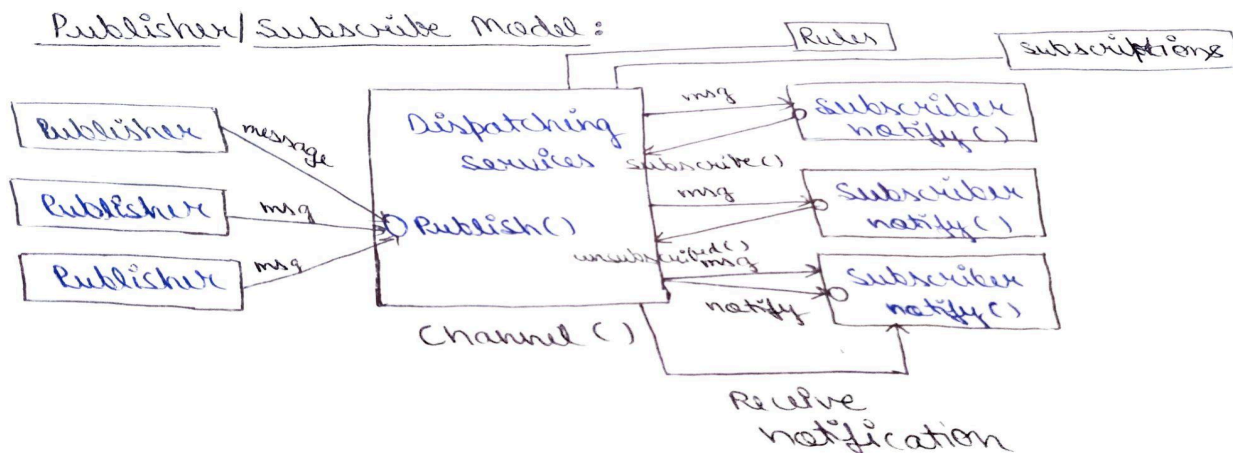 Publisher/Subscribe Model:
Rules
Subscriptions
Publisher
message
Publisher
msg
Publisher
msg
Dispatching
services
Publish()
Channel()
msg
Subscriber
notify()
subscribe()
msg
Subscriber
notify()
unsubscribed()
msg
Subscriber
notify()
notify
Receive
notification